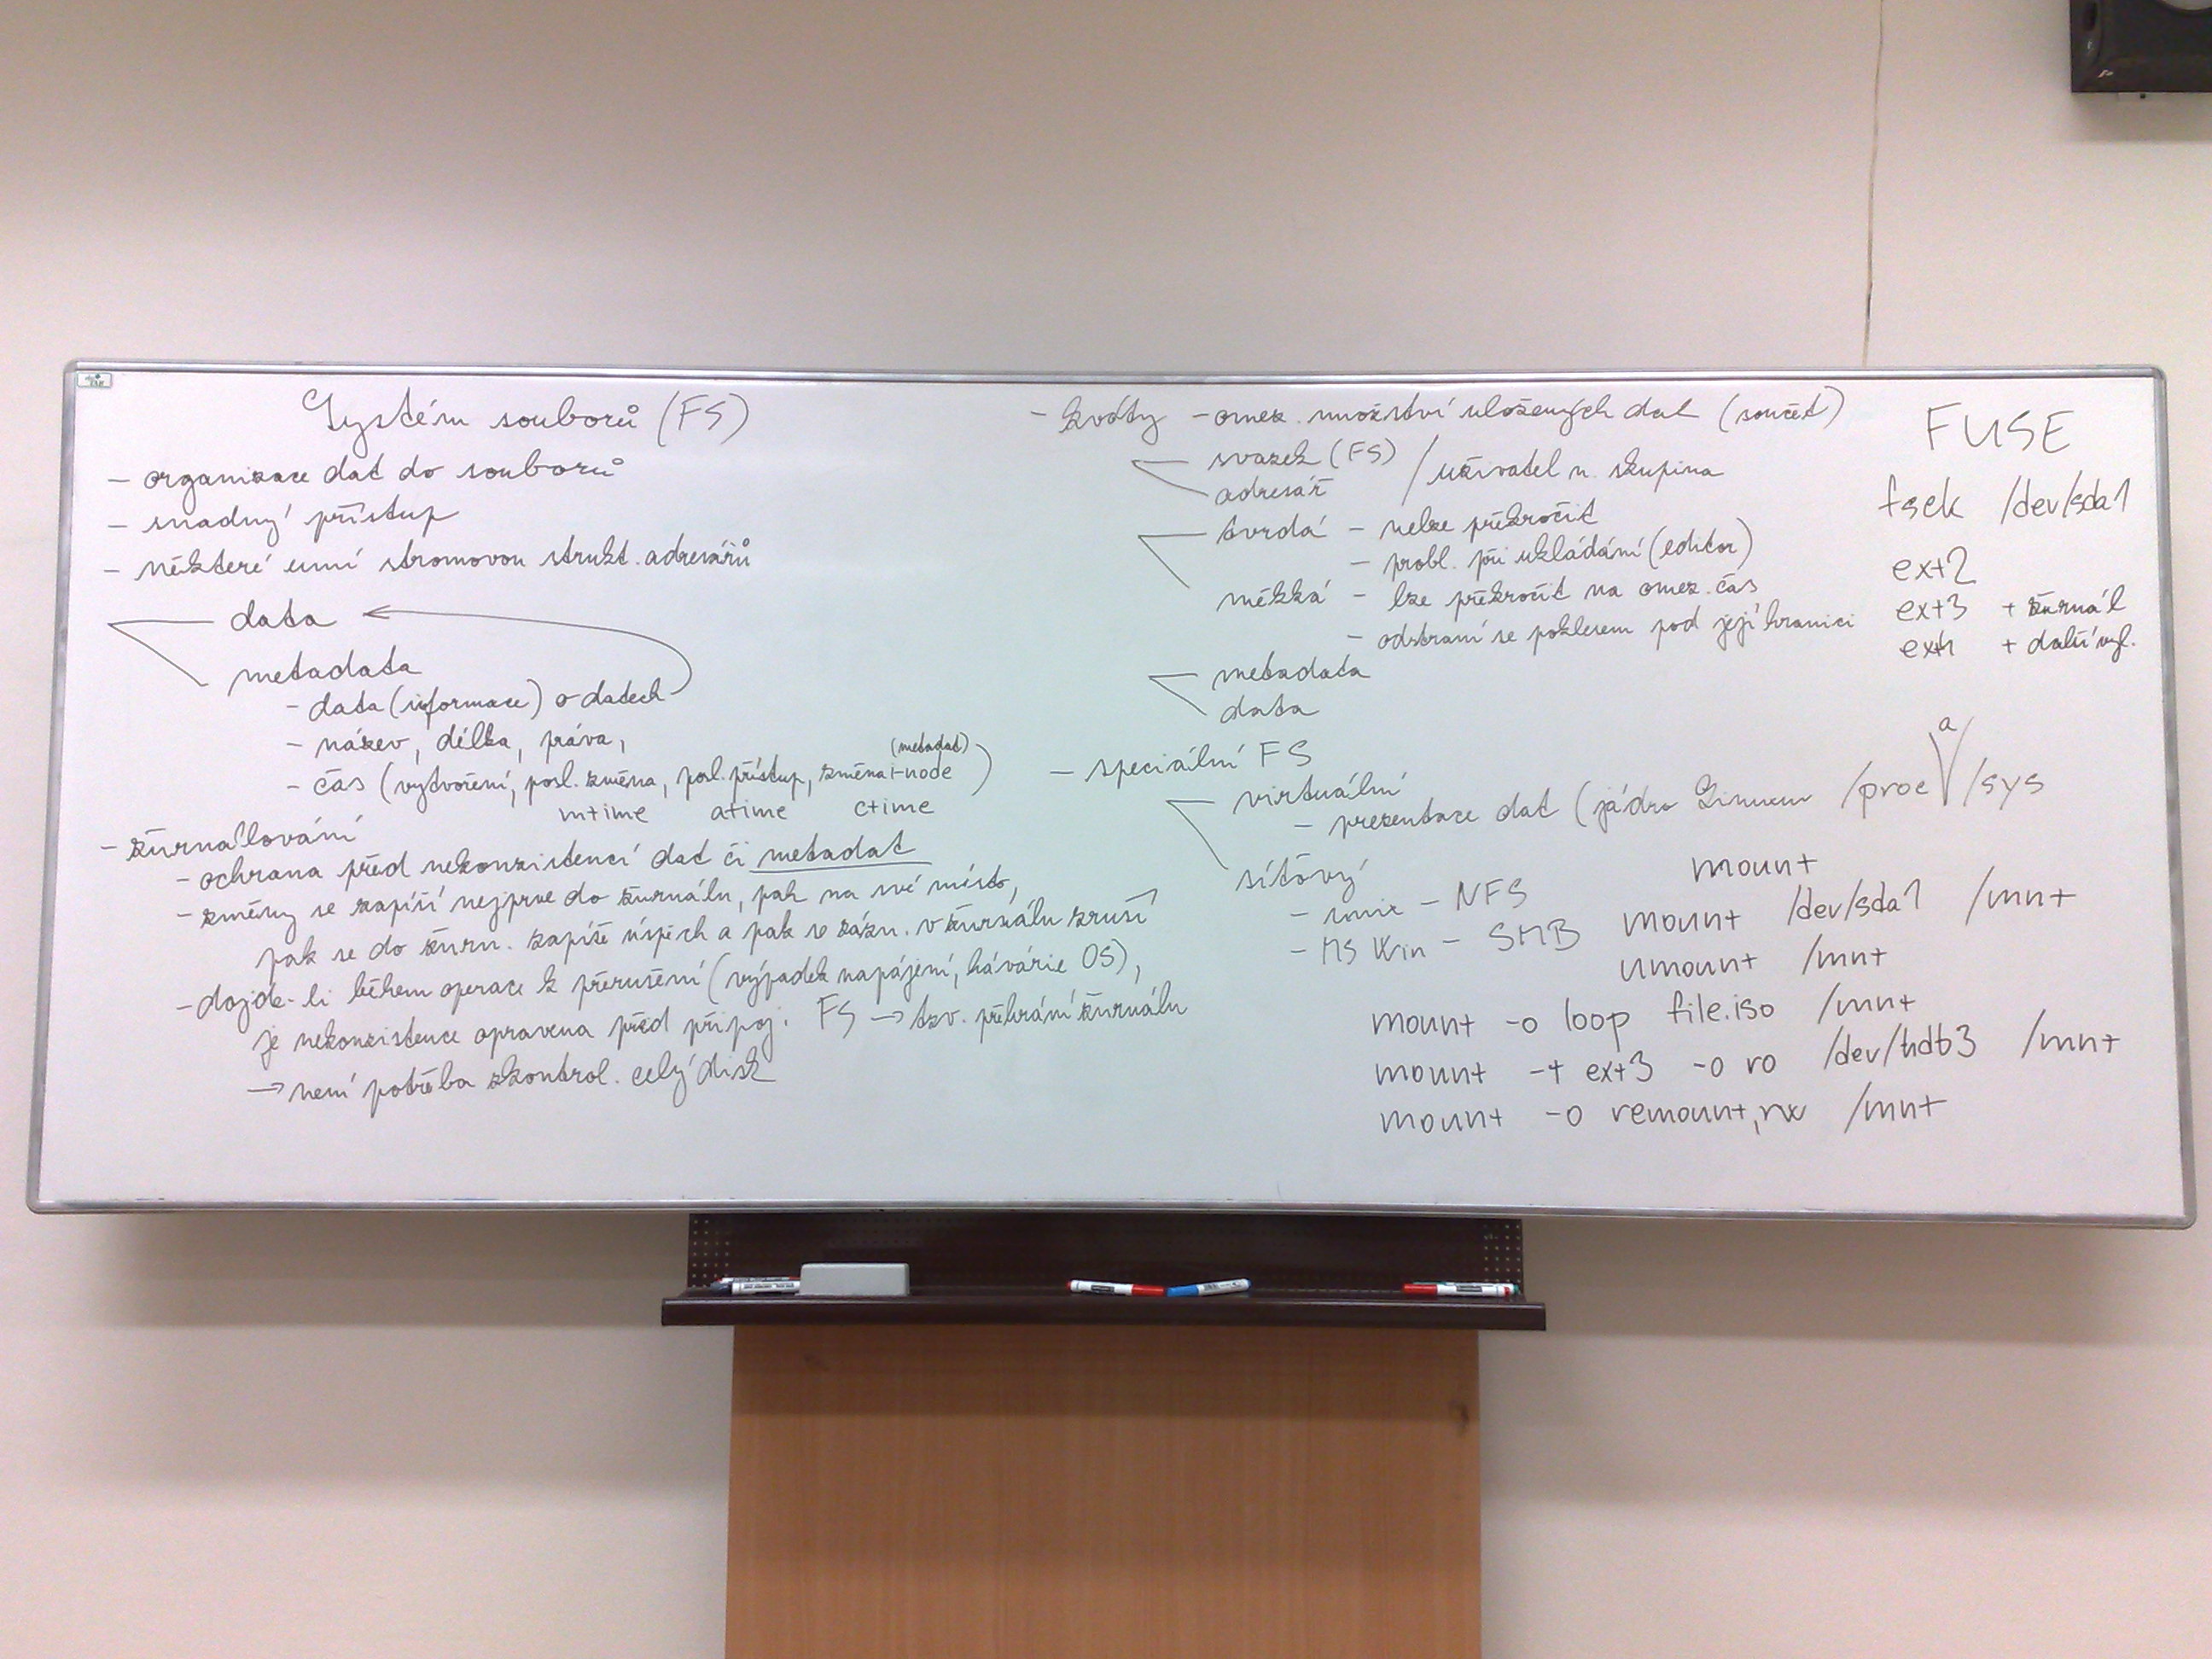 Systém souborů (FS)
- organizace dat do souborů
- snadný přístup
- některé umí stromovou strukt. adresářů
data
metadata
- data (informace) o datech
- název, délka, práva,
(metadat)
- čas (vytvoření, posl. změna, posl. přístup, změna i-node)
mtime atime ctime
- žurnálování
- ochrana před nekonzistencí dat či metadat
- změny se zapíší nejprve do žurnálu, pak na své místo,
pak se do žurn. zapíše úspěch a pak se zázn. v žurnálu zruší
- dojde-li během operace k přerušení (výpadek napájení, havárie OS),
je nekonzistence opravena před připoj. FS → tzv. přehrání žurnálu
→ není potřeba zkontrol. celý disk
- kvóty - omez. množství uložených dat (součet)
svazek (FS) / uživatel n. skupina
adresář
tvrdá - nelze překročit
- probl. při ukládání (editor)
měkká - lze překročit na omez. čas
- odstraní se poklesem pod její hranici
metadata
data
- speciální FS
virtuální
- prezentace dat (jádro Linuxu /proc a /sys
síťový
- unix - NFS
- MS Win - SMB
FUSE
fsck /dev/sda1
ext2
ext3 + žurnál
ext4 + další vyl.
mount
mount /dev/sda1 /mnt
umount /mnt
mount -o loop file.iso /mnt
mount -t ext3 -o ro /dev/hdb3 /mnt
mount -o remount,rw /mnt